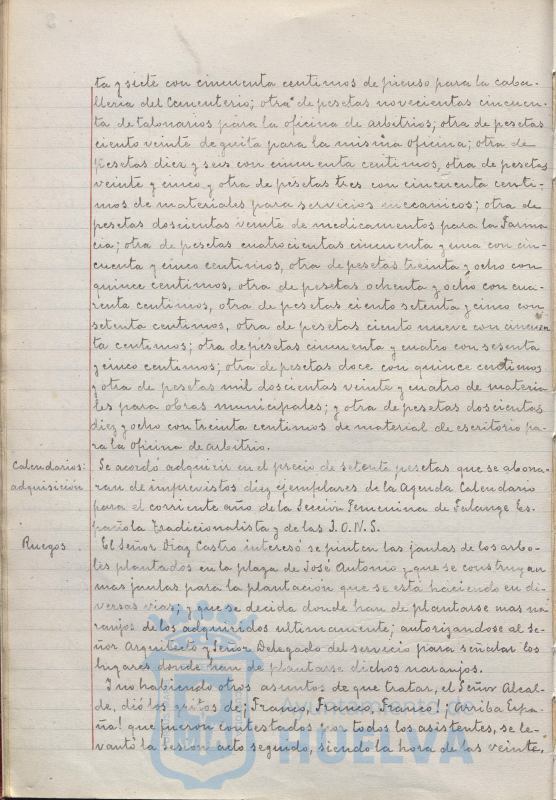 ta y siete con cincuenta centimos de pienso para la caba-
lleria del Cementerio; otra de pesetas novecientas cincuen-
ta de talonarios para la oficina de arbitrios; otra de pesetas
ciento veinte de guita para la misma oficina; otra de
pesetas diez y seis con cincuenta centimos, otra de pesetas
veinte y cinco y otra de pesetas tres con cincuenta centi-
mos de materiales para servicios mecanicos; otra de
pesetas doscientas veinte de medicamentos para la Farma
cia; otra de pesetas cuatrocientas cincuenta y una con cin-
cuenta y cinco centimos, otra de pesetas treinta y ocho con
quince centimos, otra de pesetas ochenta y ocho con cua-
renta centimos, otra de pesetas ciento setenta y cinco con
setenta centimos, otra de pesetas ciento nueve con cincuen
ta centimos; otra de pesetas cincuenta y cuatro con sesenta
y cinco centimos; otra de pesetas doce con quince centimos
y otra de pesetas mil doscientas veinte y cuatro de materia-
les para obras municipales; y otra de pesetas doscientas
diez y ocho con treinta centimos de material de escritorio pa-
ra la oficina de arbitrio.
Calendarios: Se acordó adquirir en el precio de setenta pesetas que se abona-
adquisición ran de imprevistos diez ejemplares de la Agenda Calendario
para el corriente año de la Sección Femenina de Falange Es-
pañola Tradicionalista y de las J.O.N.S.
Ruegos El Señor Diaz Castro interesó se pinten las jaulas de los arbo-
les plantados en la plaza de José Antonio y que se construyan
mas jaulas para la plantación que se está haciendo en di-
versas vias; y que se decida donde han de plantarse mas na-
ranjos de los adquiridos ultimamente; autorizandose al Se-
ñor Arquitecto y Señor Delegado del servicio para señalar los
lugares donde han de plantarse dichos naranjos.
Y no habiendo otros asuntos de que tratar, el Señor Alcal-
de, dió los gritos de ¡Franco, Franco, Franco!, ¡Arriba Espa-
ña! que fueron contestados por todos los asistentes, se le-
vantó la Sesión acto seguido, siendo la hora de las veinte,
Ayuntamiento de
HUELVA